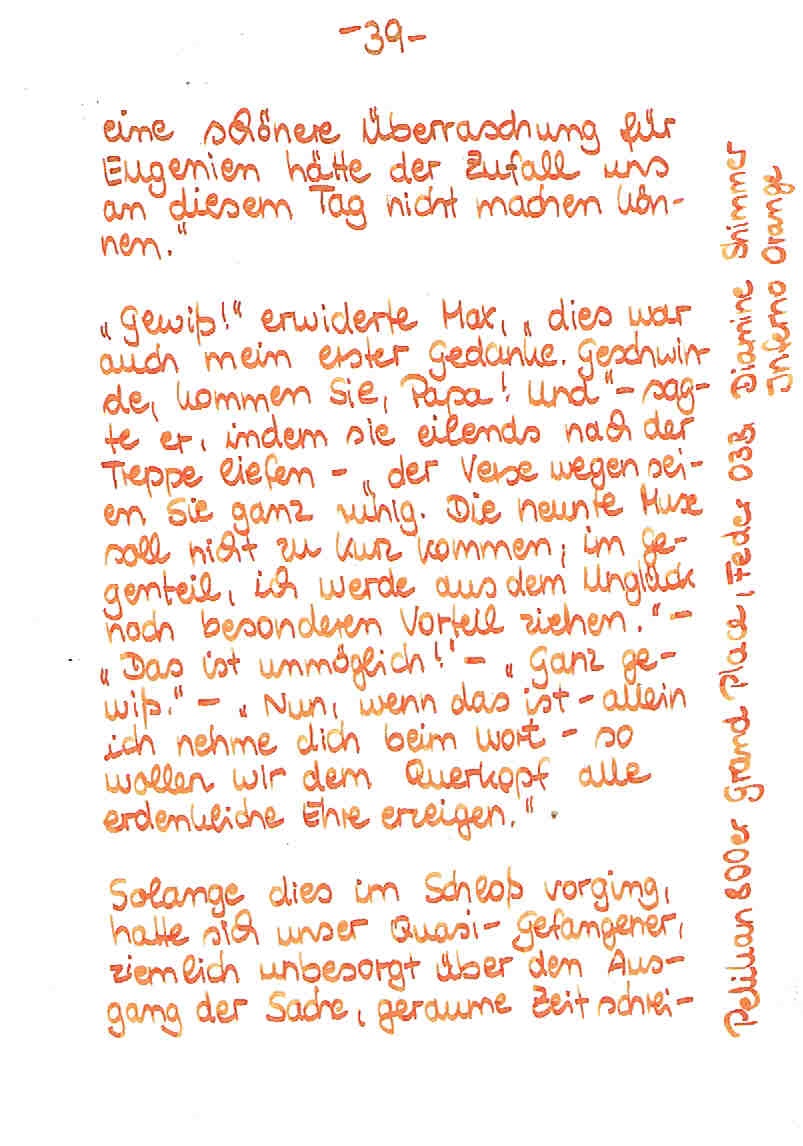 -39-
eine schönere Überraschung für
Eugenien hätte der Zufall uns
an diesem Tag nicht machen kön-
nen."
„Gewiß!" erwiderte Max, „dies war
auch mein erster Gedanke. Geschwin-
de, kommen Sie, Papa! Und" – sag-
te er, indem sie eilends nach der
Treppe liefen – „der Verse wegen sei-
en Sie ganz ruhig. Die neunte Muse
soll nicht zu kurz kommen; im Ge-
genteil, ich werde aus dem Unglück
noch besonderen Vorteil ziehen." –
„Das ist unmöglich!" – „Ganz ge-
wiß." – „Nun, wenn das ist – allein
ich nehme dich beim Wort – so
wollen wir dem Querkopf alle
erdenkliche Ehre erzeigen."
Solange dies im Schloß vorging,
hatte sich unser Quasi-Gefangener,
ziemlich unbesorgt über den Aus-
gang der Sache, geraume Zeit schrei-
Pelikan 800er Grand Place, Feder O3B, Diamine Shimmer
Inferno Orange